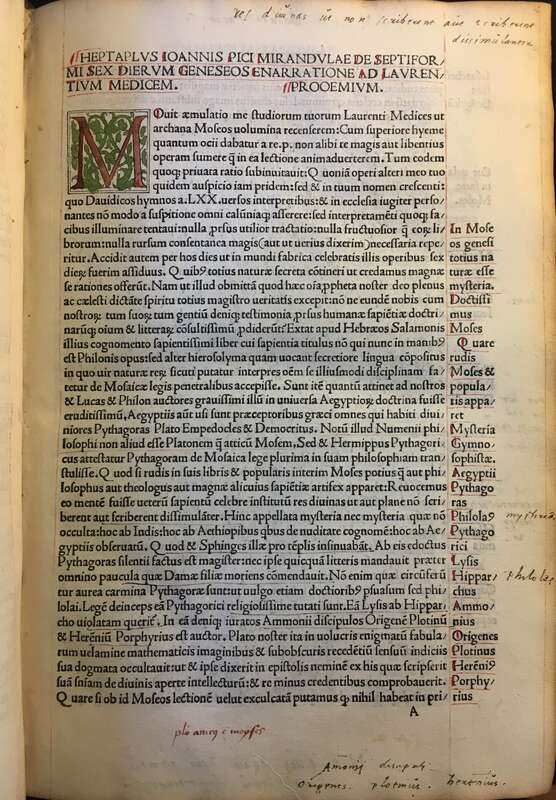 res diuinas ut non scriberent aut scriberent
dissimulanter
HEPTAPLVS IOANNIS PICI MIRANDVLAE DE SEPTIFOR
MI SEX DIERVM GENESEOS ENARRATIONE AD LAVREN
TIVM MEDICEM. PROOEMIVM.
MOuit æmulatio me studiorum tuorum Laurenti Medices ut
archana Moseos uolumina recenserem: Cum superiore hyeme
quantum ocii dabatur a re.p. non alibi te magis aut libentius
operam sumere q̃ in ea lectione animaduerterem. Tum eodem
quoqꝫ priuata ratio subinuitauit: Quoniã operi alteri meo tuo
quidem auspicio iam pridem: sed & in tuum nomen crescenti:
quo Dauidicos hymnos a .LXX. uersos interpretibus: & in ecclesia iugiter perso/
nantes nõ modo a suspitione omni calũniaqꝫ asserere: sed interpretamẽti quoqꝫ fa/
cibus illuminare tentaui: nulla ꝓrsus utilior tractatio: nulla fructuosior q̃ eorꝫ li/
brorum: nulla rursum consentanea magis (aut ut uerius dixerim) necessaria repe/
ritur. Accidit autem per hos dies ut in mundi fabrica celebratis illis operibus sex
dierꝫ fuerim assiduus. Quibꝰ totius naturæ secreta cõtineri ut credamus magnæ
se rationes offerũt. Nam ut illud obmittã quod hæc oĩa ꝓpheta noster deo plenus
ac cælesti dictãte spiritu totius magistro ueritatis excepit: nõ ne eundẽ nobis cum
nostrorꝫ tum suorꝫ tum gentiũ deniqꝫ testimonia ꝓrsus humanæ sapiẽtiæ doctri/
narũqꝫ oium & litterarꝫ cõsultissimũ ꝓdiderũt? Extat apud Hebræos Salamonis
illius cognomento sapientissimi liber cui sapientia titulus nõ qui nunc in manibꝰ
est Philonis opus: sed alter hierosolyma quam uocant secretiore lingua cõpositus
in quo uir naturæ rerꝫ sicuti putatur interpres oẽm se illiusmodi disciplinam fa/
tetur de Mosaicæ legis penetralibus accepisse. Sunt itẽ quantũ attinet ad nostros
& Lucas & Philon auctores grauissimi illũ in uniuersa Aegyptiorꝫ doctrina fuisse
eruditissimũ, Aegyptiis aũt usi sunt præceptoribus græci omnes qui habiti diui/
niores Pythagoras Plato Empedocles & Democritus. Notũ illud Numenii phi/
losophi non aliud esse Platonem q̃ atticũ Mosem, Sed & Hermippus Pythagori/
cus attestatur Pythagoram de Mosaica lege plurima in suam philosophiam tran/
stulisse. Quod si rudis in suis libris & popularis interim Moses potius q̃ aut phi/
losophus aut theologus aut magnæ alicuius sapiẽtiæ artifex apparet: Reuocemus
eo mentẽ fuisse ueterũ sapientũ celebre institutũ res diuinas ut aut plane nõ scri/
berent aut scriberent dissimulãter. Hinc appellata mysteria nec mysteria quæ nõ
occulta: hoc ab Indis: hoc ab Aethiopibus qbus de nuditate cognomẽ: hoc ab Ae/
gyptiis obseruatũ. Quod & Sphinges illæ pro tẽplis insinuabãt. Ab eis edoctus
Pythagoras silentii factus est magister: nec ipse quicquã litteris mandauit præter
omnino paucula quæ Damæ filiæ moriens cõmendauit. Nõ enim quæ circũferũ
tur aurea carmina Pythagoræ sunt: ut uulgo etiam doctioribꝰ psuasum sed phi/
lolai. Legẽ deinceps eã Pythagorici religiosissime tutati sunt. Eã Lysis ab Hippar/
cho uiolatam querit. In eã deniqꝫ iuratos Ammonii discipulos Origenẽ Plotinũ
& Herẽniũ Porphyrius est auctor. Plato noster ita inuolucris enigmatũ fabula/
rum uelamine mathematicis imaginibus & subobscuris recedẽtiũ sensuũ indiciis
sua dogmata occultauit: ut & ipse dixerit in epistolis neminẽ ex his quæ scripserit
suã sniam de diuinis aperte intellecturũ: & re minus credentibus comprobauerit.
Quare si ob id Moseos lectionẽ uelut exculcatã putamus qꝫ nihil habeat in pri/
A
In Mose
os genesi
totius na
turæ esse
mysteria
Doctissi
mus
Moses
Quare
rudis
Moses &
popula/
ris appa/
ret
Mysteria
Gymno/
sophistæ.
Aegyptii
Pythago
ras
Philolaꝰ
Pythago
rici
Lysis
Hippar/
chus
Ammo/
nius
Origenes
Plotinus
Herẽniꝰ
Porphy/
rius
mysteria
Philola
Ammonij discipuli
Origenes. plotinus. herennius.